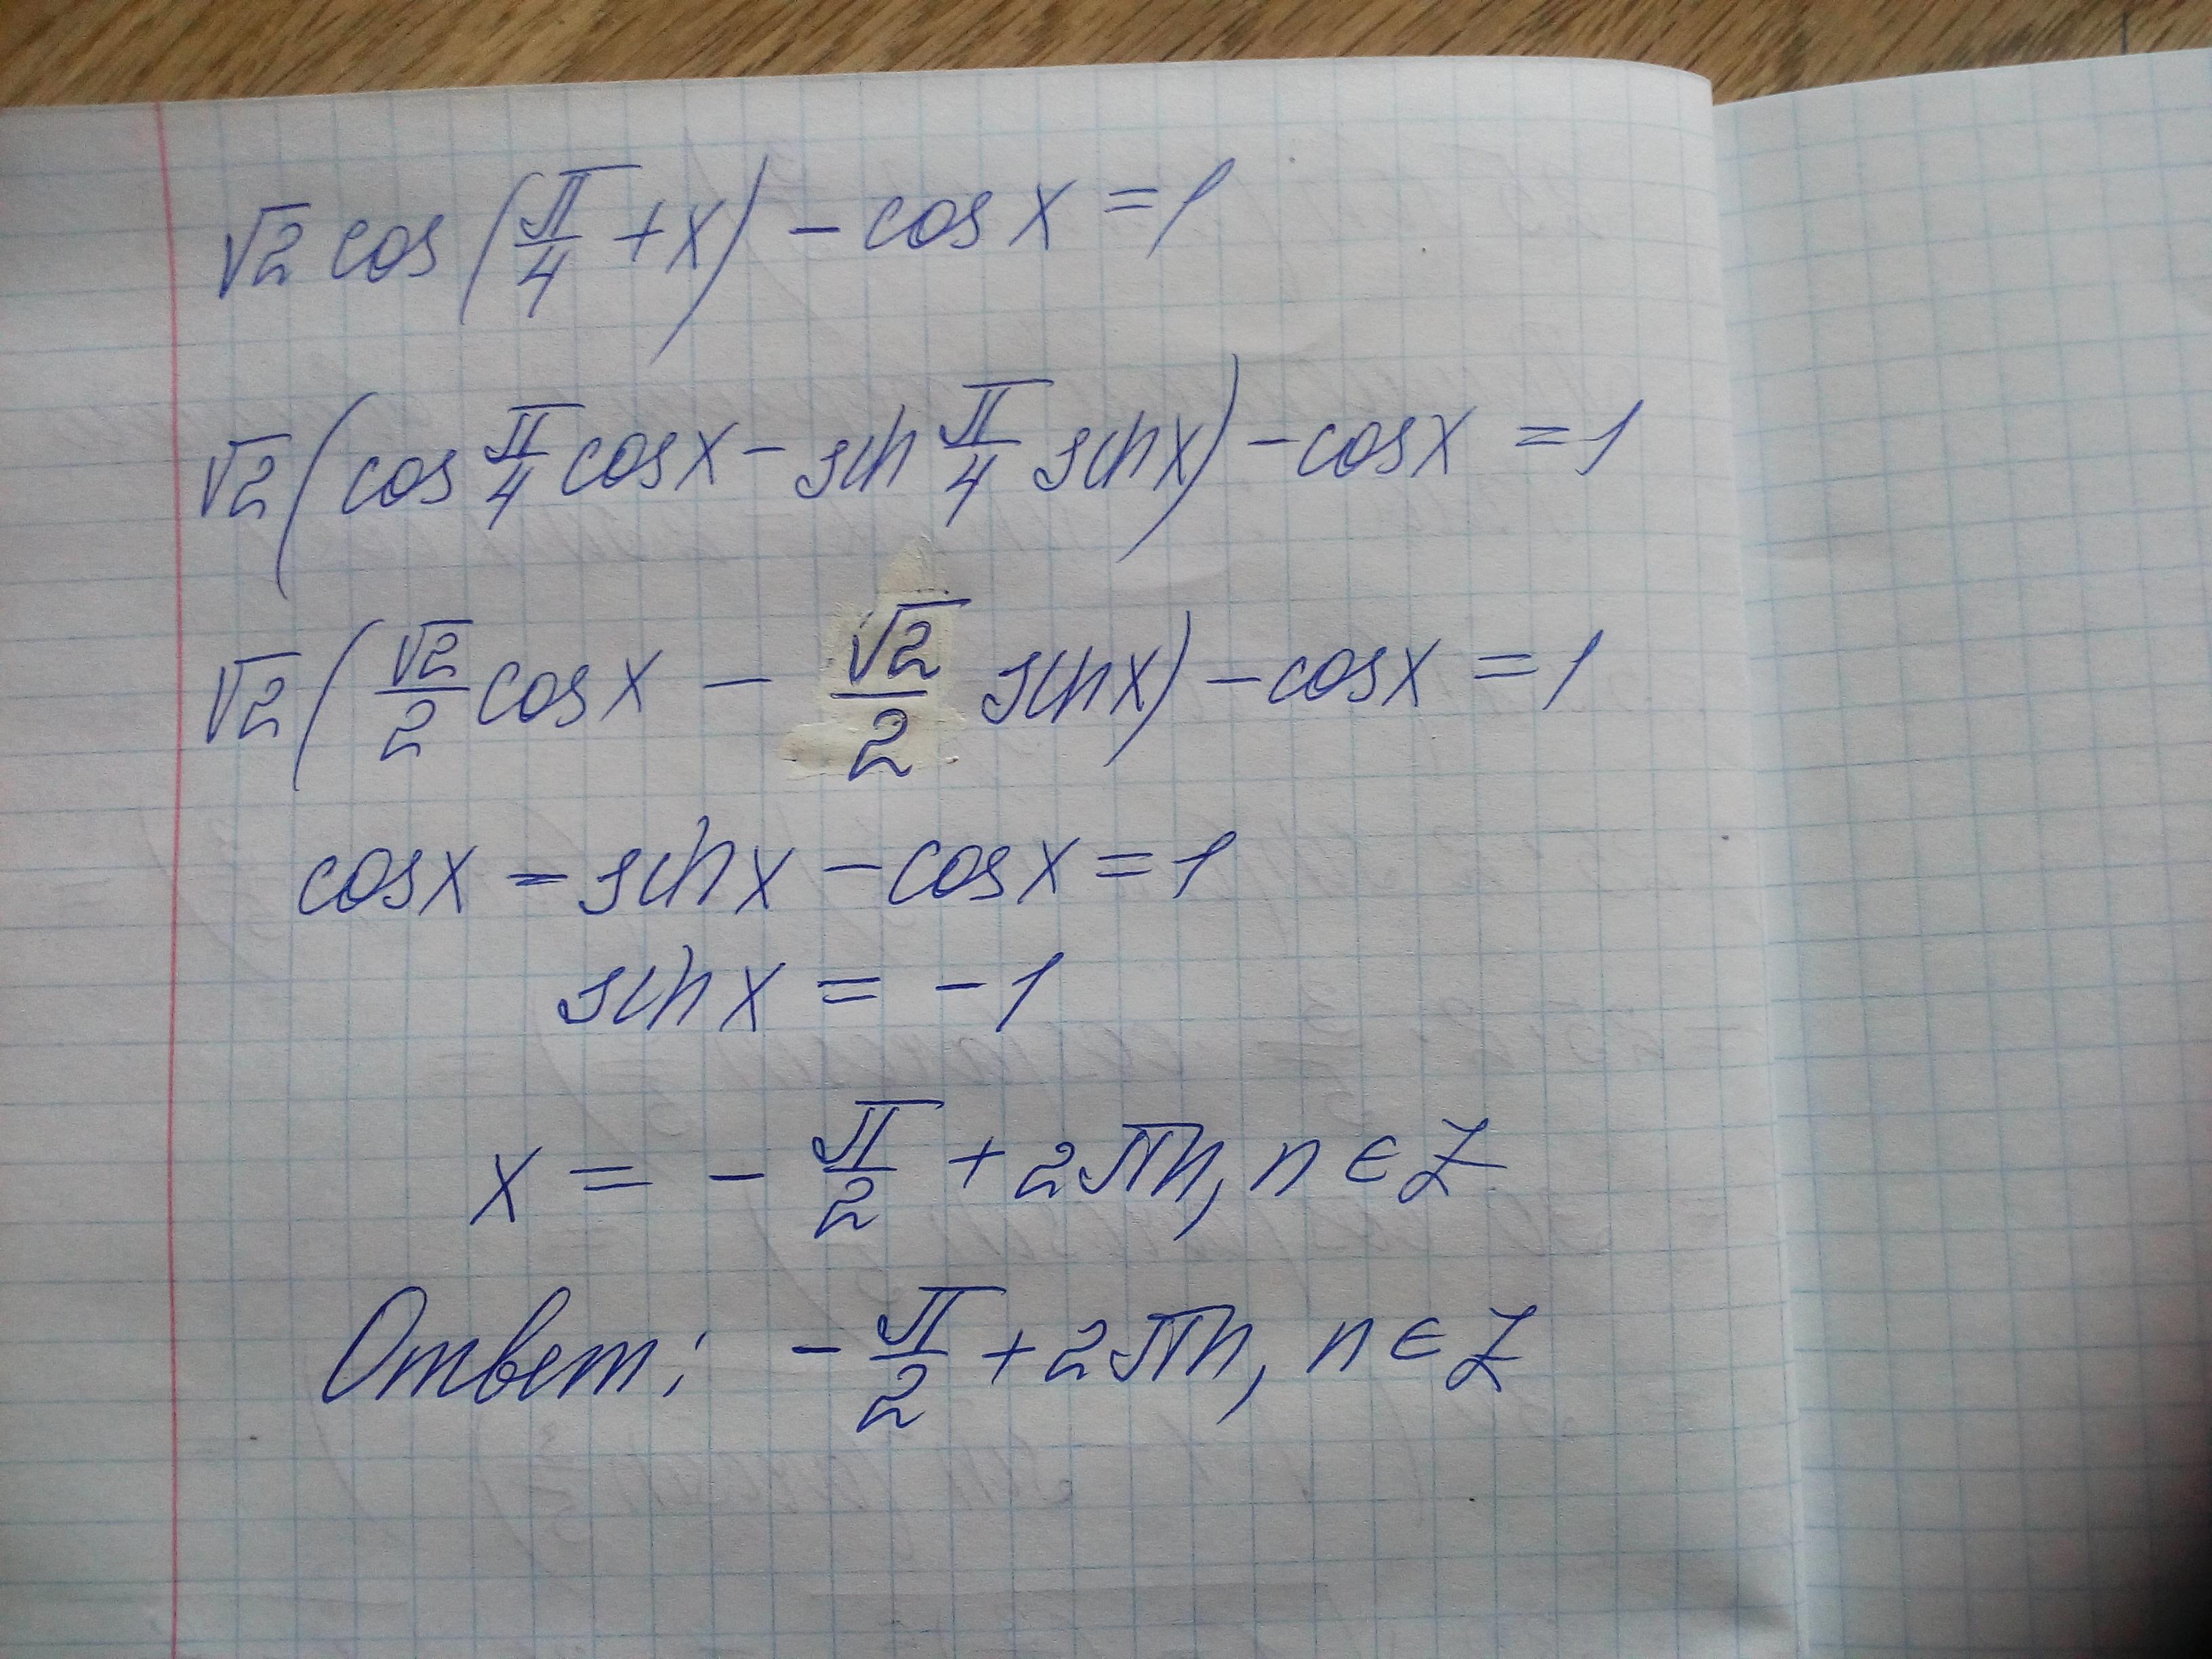 √2 cos(π/4 + x) − cos x = 1
√2(cos π/4 cos x − sin π/4 sin x) − cos x = 1
√2(√2/2 cos x − √2/2 sin x) − cos x = 1
cos x − sin x − cos x = 1
sin x = −1
x = −π/2 + 2πn, n ∈ Z
Ответ: −π/2 + 2πn, n ∈ Z